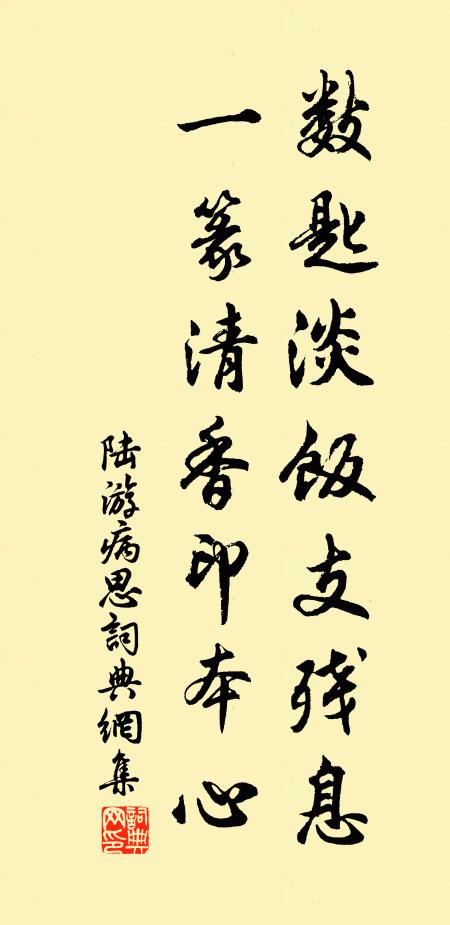 数匙淡飯支残息
一篆清香印本心
陆游病思詞典網集
詞典网印